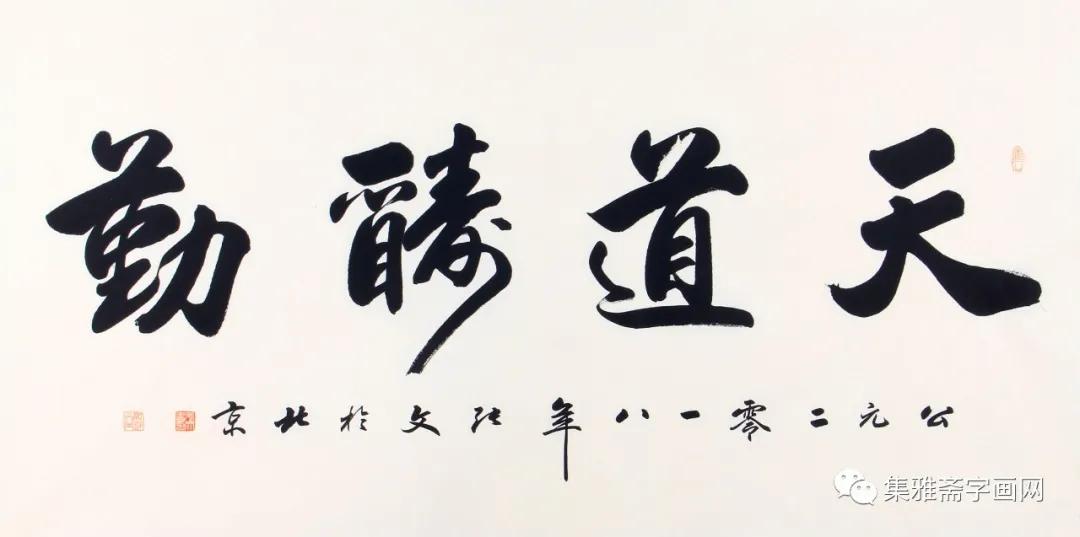 天道醻勤
公元二零一八年张文於北京
集雅斋字画网